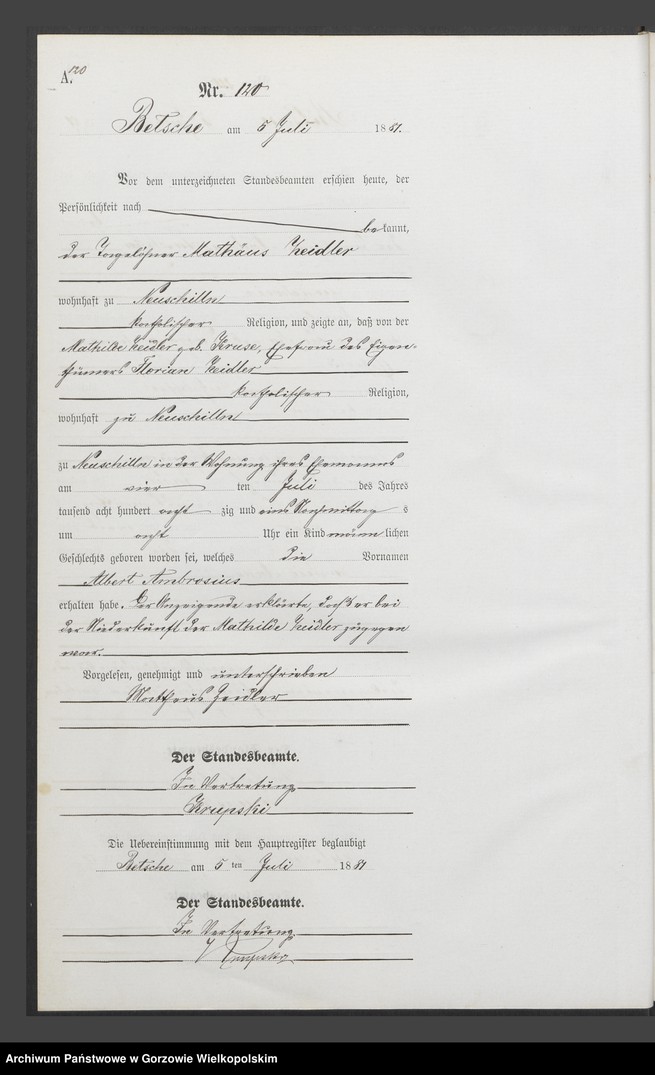 A. 120
Nr. 120
Betsche am 5 Juli 1881.
Vor dem unterzeichneten Standesbeamten erschien heute, der
Persönlichkeit nach
bekannt,
der Tagelöhner Mathäus Zeidler
wohnhaft zu Neuschilln
katholischer Religion, und zeigte an, daß von der
Mathilde Zeidler geb. Kruse, Ehefrau des Eigen-
thümers Florian Zeidler
katholischer Religion,
wohnhaft zu Neuschilln
zu Neuschilln in der Wohnung ihres Ehemannes
am vier ten Juli des Jahres
tausend acht hundert acht zig und eins Nachmittag s
um acht Uhr ein Kind männ lichen
Geschlechts geboren worden sei, welches die Vornamen
Albert Ambrosius
erhalten habe. Der Anzeigende erklärte, daß er bei
der Niederkunft der Mathilde Zeidler zugegen
war.
Vorgelesen, genehmigt und unterschrieben
Mathäus Zeidler
Der Standesbeamte.
In Vertretung
Krupski
Die Uebereinstimmung mit dem Hauptregister beglaubigt
Betsche am 5 ten Juli 1881
Der Standesbeamte.
In Vertretung
Krupski
Archiwum Państwowe w Gorzowie Wielkopolskim